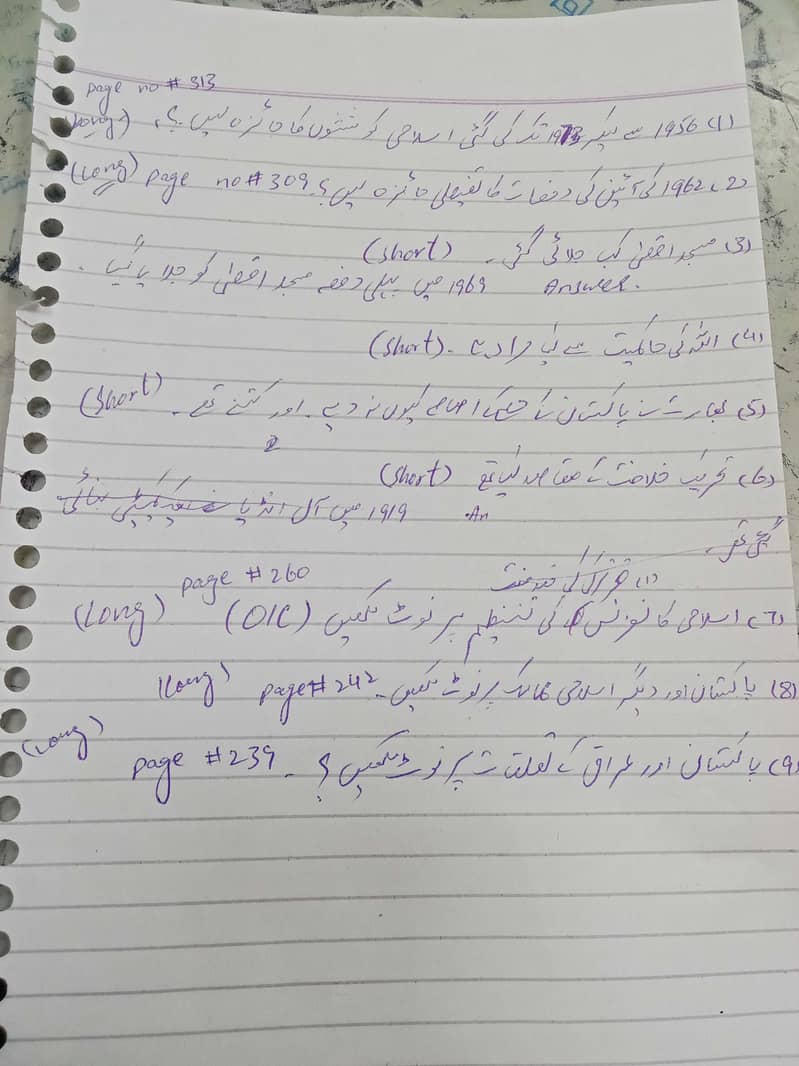 page no # 313
(1) 1956 سے لیکر 1973 تک کی گئی اسلامی کوششوں کا جائزہ لیں ؟ (Long)
(2) 1962 کی آئین کی دفعات کا تفصیلی جائزہ لیں ؟ page no # 309 (Long)
(3) مسجد اقصیٰ کب جلائی گئی ۔ (short)
Answer. 1969 میں پہلی دفعہ مسجد اقصیٰ کو جلایا گیا ۔
(4) اللہ کی حاکمیت سے کیا مراد ہے ۔ (short)
(5) بھارت نے پاکستان کے حصے کے اثاثے کیوں نہ دیے ۔ اور کتنے تھے ۔ (short)
(6) تحریک خلافت کے مقاصد کیا تھے (short)
An. 1919 میں آل انڈیا کمیٹی بنائی
گئی تھی۔
page # 260
(7) اسلامی کانفرنس کی تنظیم پر نوٹ لکھیں (OIC) (Long)
(8) پاکستان اور دیگر اسلامی ممالک پر نوٹ لکھیں ۔ page # 242 (Long)
(9) پاکستان اور عراق کے تعلقات پر نوٹ لکھیں ؟ ۔ page # 239 (Long)